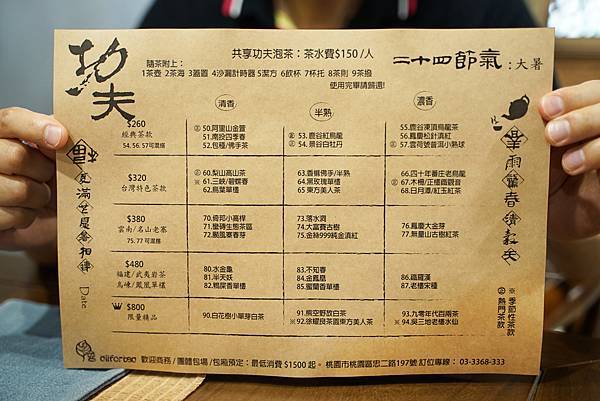 功夫
共享功夫泡茶：茶水費$150 /人
隨茶附上：
1茶壺 2茶海 3蓋置 4沙漏計時器 5潔方 6飲杯 7杯托 8茶則 9茶撥
使用完畢請歸還!
二十四節氣：大暑
清香
半熟
濃香
$260
經典茶款
54. 56. 57可混搭
㊣50.阿里山金萱
51.南投四季春
52.包種/佛手茶
㊣ 53. 鹿谷紅烏龍
㊣ 54. 景谷白牡丹
55.鹿谷凍頂烏龍茶
56.鳳慶松針滇紅
㊣ 57.雲荷號普洱小熟球
$320
台灣特色茶款
㊣60.梨山高山茶
※61.三峽/碧螺春
62.烏葉單欉
63.香櫞佛手/半熟
64.黑玫瑰單欉
65.東方美人茶
66.四十年番庄老烏龍
㊣67.木柵/正欉鐵觀音
68.日月潭/紅玉紅茶
$380
雲南/名山老寨
75. 77可混搭
70.脊邦小高桿
71.蠻磚生態茶區
72.颳風寨春芽
73.落水洞
74.大富賽古樹
75.金絲999純金滇紅
76.鳳慶大金芽
77.無量山古樹紅茶
$480
福建/武夷岩茶
烏崠/鳳凰單欉
80.水金龜
81.半天妖
82.鴨屎香單欉
83.不知春
84.金鳳凰
85.蜜蘭香單欉
86.鐵羅漢
87.老欉宋種
$800
限量精品
90.白花樹小單芽白茶
91.熊空野放白茶
※92.徐耀良茶園東方美人茶
93.九零年代百兩茶
※ 94.吳三地老欉水仙
夏滿芒夏暑相連
Date
※ 季節性茶款
㊣ 熱門茶款
歡迎商務 / 團體包場 /包廂預定：最低消費 $1500 起。 桃園市桃園區忠二路197號 訂位專線： 03-3368-333